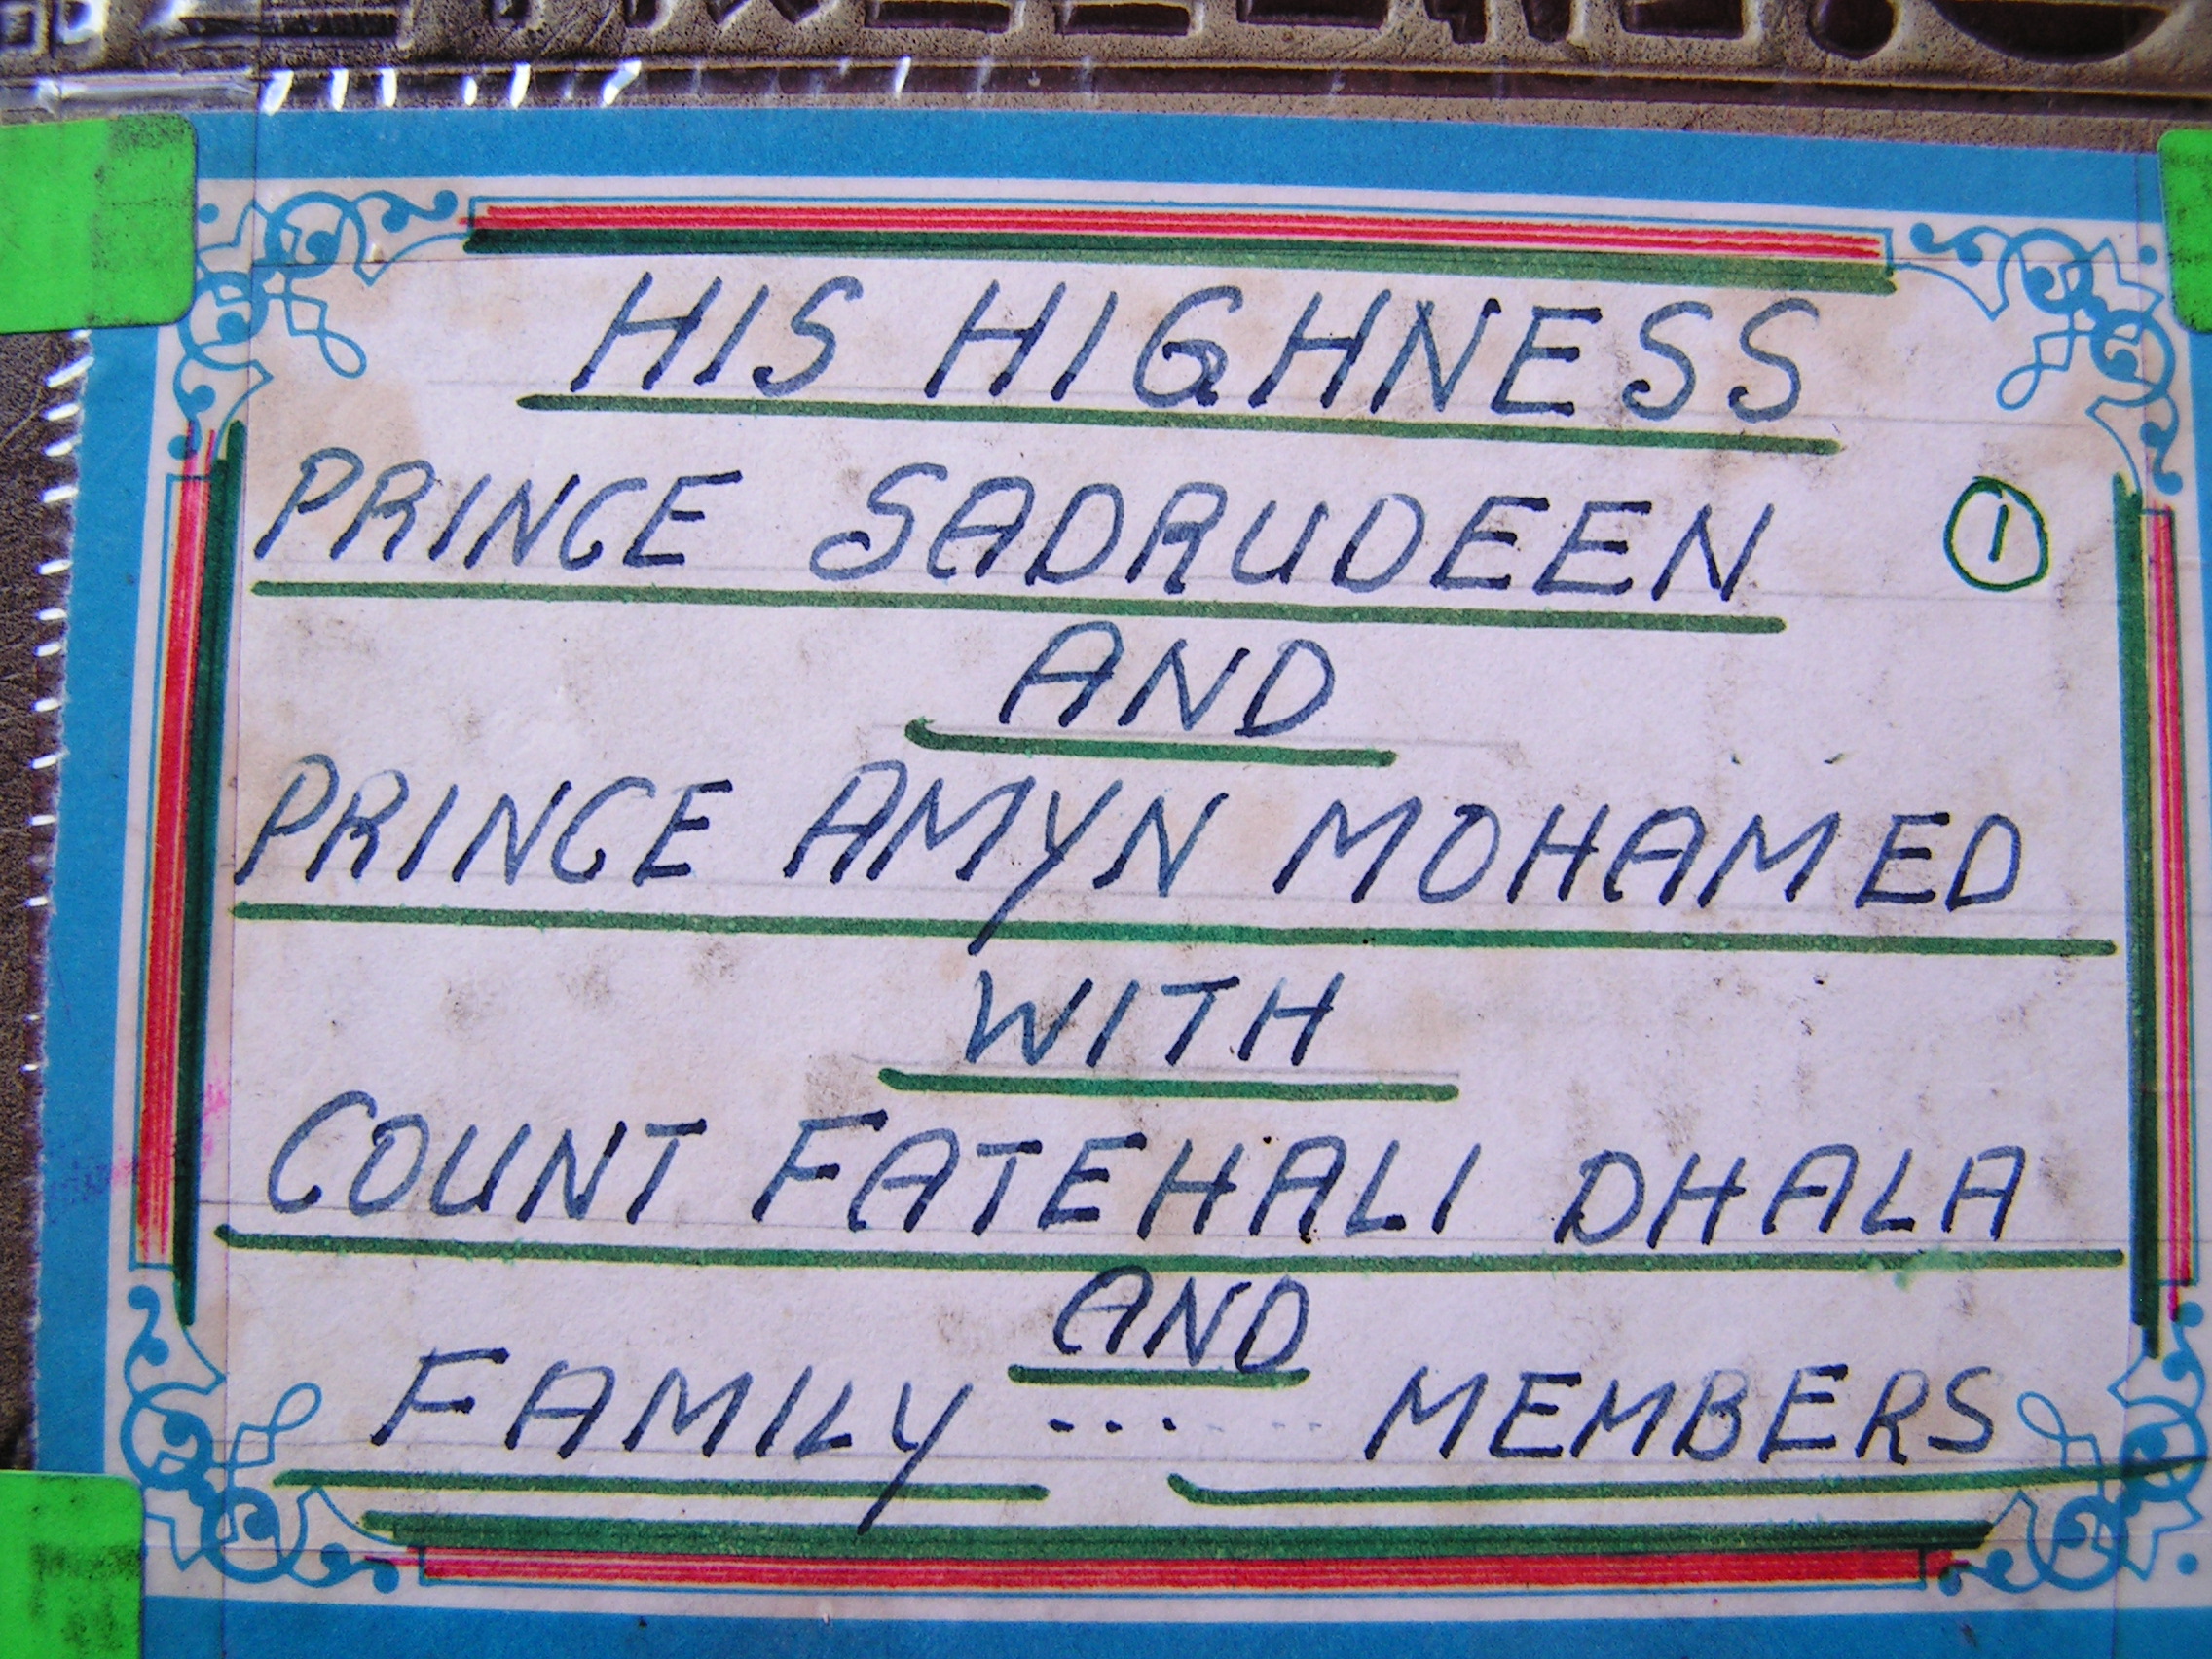 HIS HIGHNESS
PRINCE SADRUDEEN ①
AND
PRINCE AMYN MOHAMED
WITH
COUNT FATEHALI DHALA
AND
FAMILY ...... MEMBERS